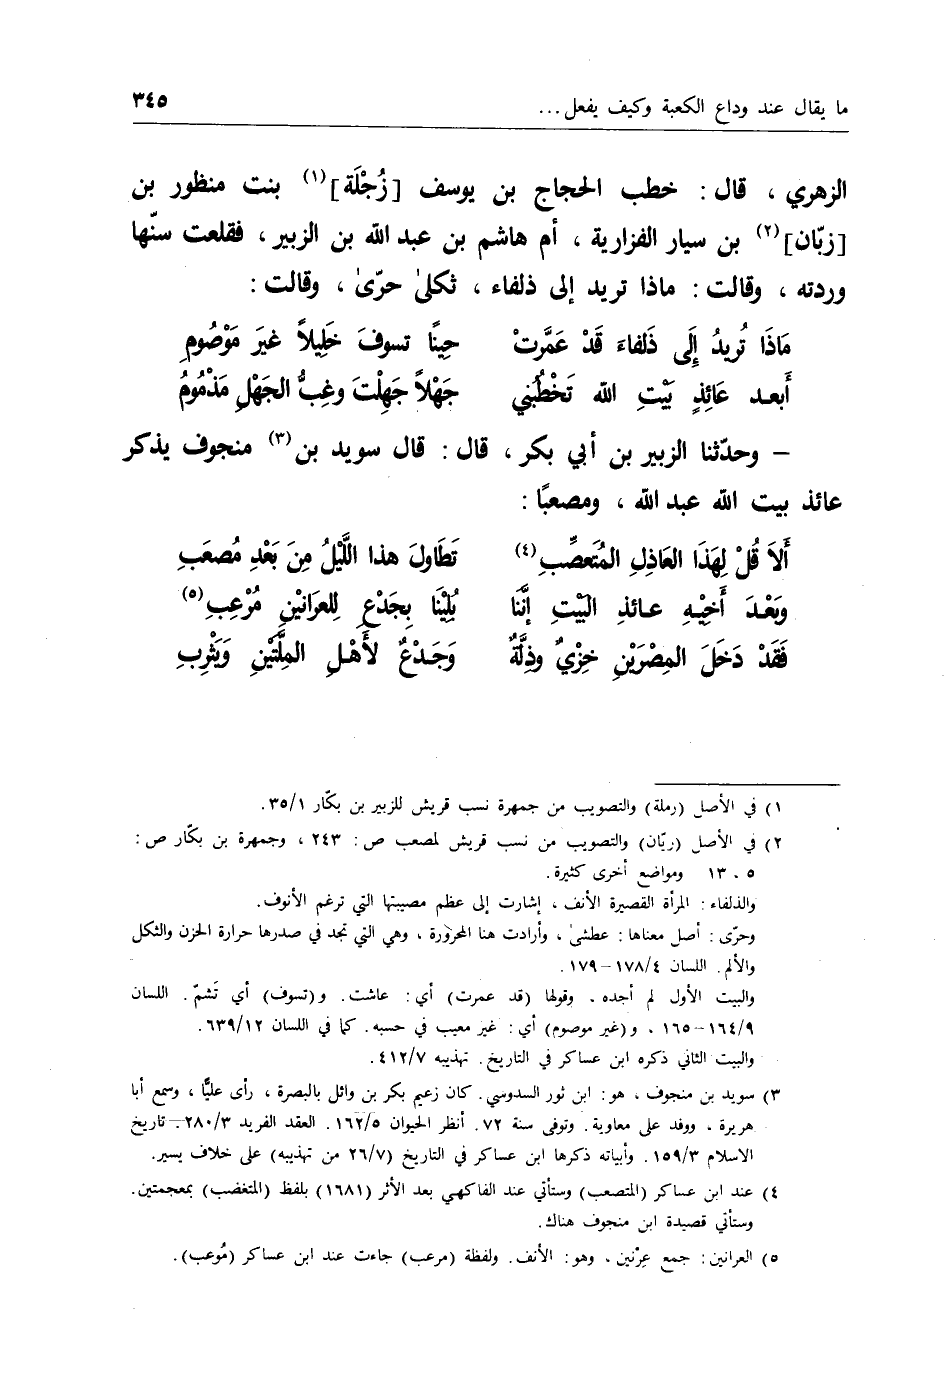 ما يقال عند وداع الكعبة وكيف يفعل ... ٣٤٥
الزهري ، قال : خطب الحجاج بن يوسف [زُجْلَة](١) بنت منظور بن
[زبّان](٢) بن سيار الفزارية ، أم هاشم بن عبد الله بن الزبير ، فقلعت سنّها
وردته ، وقالت : ماذا تريد إلى ذلفاء ، ثكلىٰ حرّىٰ ، وقالت :
مَاذَا تُريدُ إلَى ذَلفاءَ قَدْ عَمَّرتْ حِينًا تسوفَ خَلِيلاً غيَر مَوْصُومِ
أَبعـد عَائِذِ بَيْتِ الله تَخْطُبُني جَهْلاً جَهِلْتَ وغِبُّ الجَهْلِ مَذْمُومُ
– وحدّثنا الزبير بن أبي بكر ، قال : قال سويد بن(٣) منجوف يذكر
عائذ بيت الله عبد الله ، ومصعبًا :
أَلاَ قُلْ لِهَذَا العَاذِلِ المُتَعصِّبِ(٤) تَطَاولَ هذا اللَّيْلُ مِنَ بَعْدِ مُصعَبِ
وبَعْـدَ أَخِيْـهِ عـائذِ البَيْتِ إنَّنا بُلِيْنَا بِجَدْعٍ لِلعَرَانْيِن مُرْعِبِ(٥)
فَقَدْ دَخَلَ المِصْرَيْنِ خِزْيٌ وذِلَّةٌ وَجَـدْعٌ لأَهْـلِ المِلَّتَيْنِ وَيَثْرِبِ
١) في الأصل (رملة) والتصويب من جمهرة نسب قريش للزبير بن بكّار ٣٥/١.
٢) في الأصل (ريّان) والتصويب من نسب قريش لمصعب ص : ٢٤٣ ، وجمهرة بن بكّار ص :
٥ ، ١٣ ومواضع أخرى كثيرة.
والذلفاء : المرأة القصيرة الأنف ، إشارت إلى عظم مصيبتها التي ترغم الأنوف.
وحرّى : أصل معناها : عطشىٰ ، وأرادت هنا المحرورة ، وهي التي تجد في صدرها حرارة الحزن والثكل
والألم. اللسان ١٧٨/٤–١٧٩.
والبيت الأول لم أجده ، وقولها (قد عمرت) أي : عاشت. و(تسوف) أي تَشمّ. اللسان
١٦٤/٩–١٦٥ ، و(غير موصوم) أي : غير معيب في حسبه. كما في اللسان ٦٣٩/١٢.
والبيت الثاني ذكره ابن عساكر في التاريخ. تهذيبه ٤١٢/٧.
٣) سويد بن منجوف ، هو : ابن ثور السدوسي. كان زعيم بكر بن وائل بالبصرة ، رأى عليًّا ، وسمع أبا
هريرة ، ووفد على معاوية. وتوفى سنة ٧٢. أنظر الحيوان ١٦٢/٥. العقد الفريد ٢٨٠/٣. تاريخ
الاسلام ١٥٩/٣. وأبياته ذكرها ابن عساكر في التاريخ (٢٦/٧ من تهذيبه) على خلاف يسير.
٤) عند ابن عساكر (المتصعب) وستأتي عند الفاكهي بعد الأثر (١٦٨١) بلفظ (المتغضب) بمعجمتين.
وستأتي قصيدة ابن منجوف هناك.
٥) العرانين : جمع عِرْنين ، وهو : الأنف. ولفظة (مرعب) جاءت عند ابن عساكر (مُوعب).